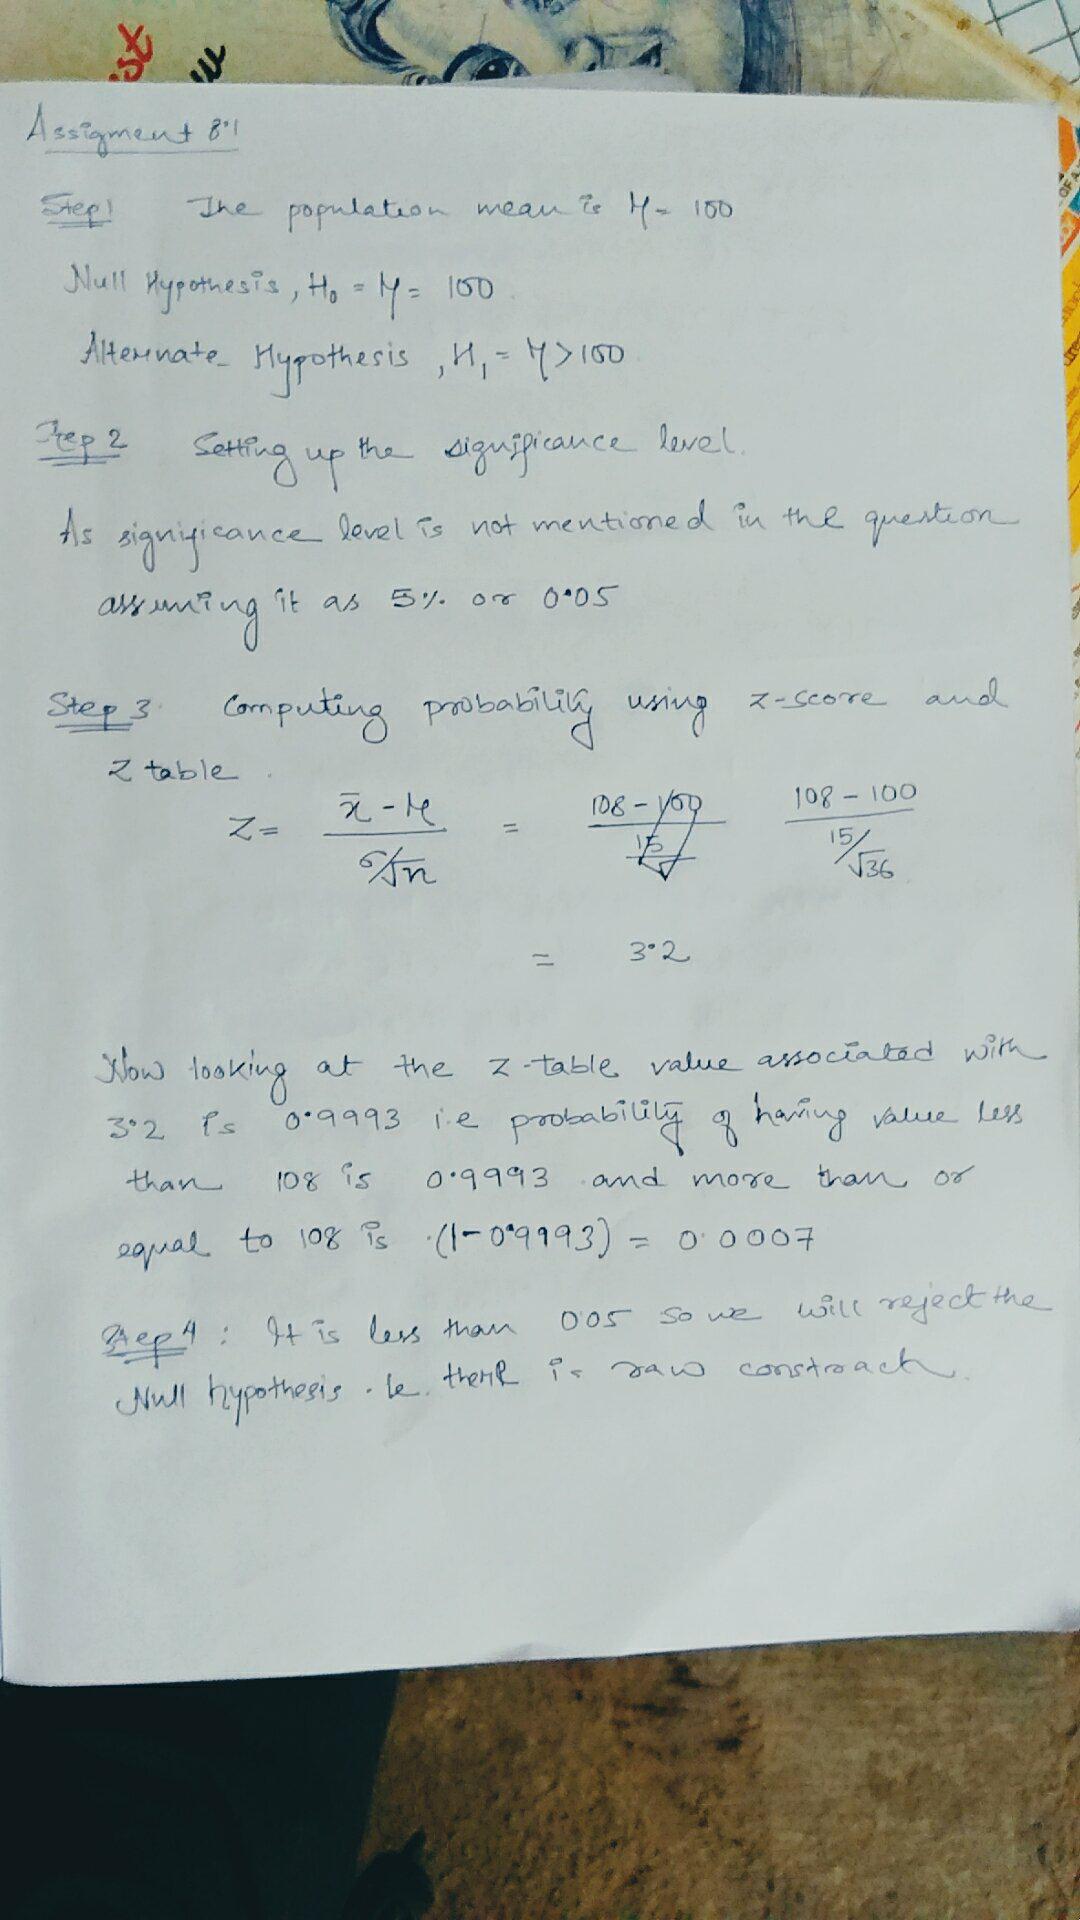 Assigment 8.1
Step 1 The population mean is μ = 100
Null Hypothesis, H₀ = μ = 100
Alternate Hypothesis, H₁ = μ > 100
Step 2 Setting up the significance level.
As significance level is not mentioned in the question
assuming it as 5% or 0.05
Step 3 Computing probability using z-score and
Z table.
Z = (x̄ - μ) / (σ/√n) = (108 - 100) / (15/√36)
= 3.2
Now looking at the z-table value associated with
3.2 is 0.9993 i.e probability of having value less
than 108 is 0.9993 and more than or
equal to 108 is (1-0.9993) = 0.0007
Step 4 : It is less than 0.05 so we will reject the
Null hypothesis. ie. there is raw